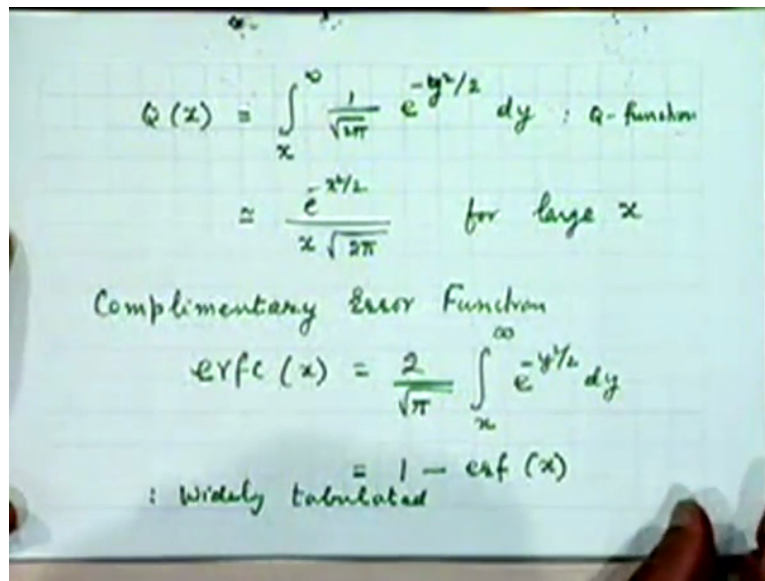 Q(x) = ∫_x^∞ 1/√2π e^{-y²/2} dy : Q-function
≃ e^{-x²/2} / x√2π for large x
Complimentary Error Function
erfc(x) = 2/√π ∫_x^∞ e^{-y²/2} dy
= 1 – erf(x)
: Widely tabulated